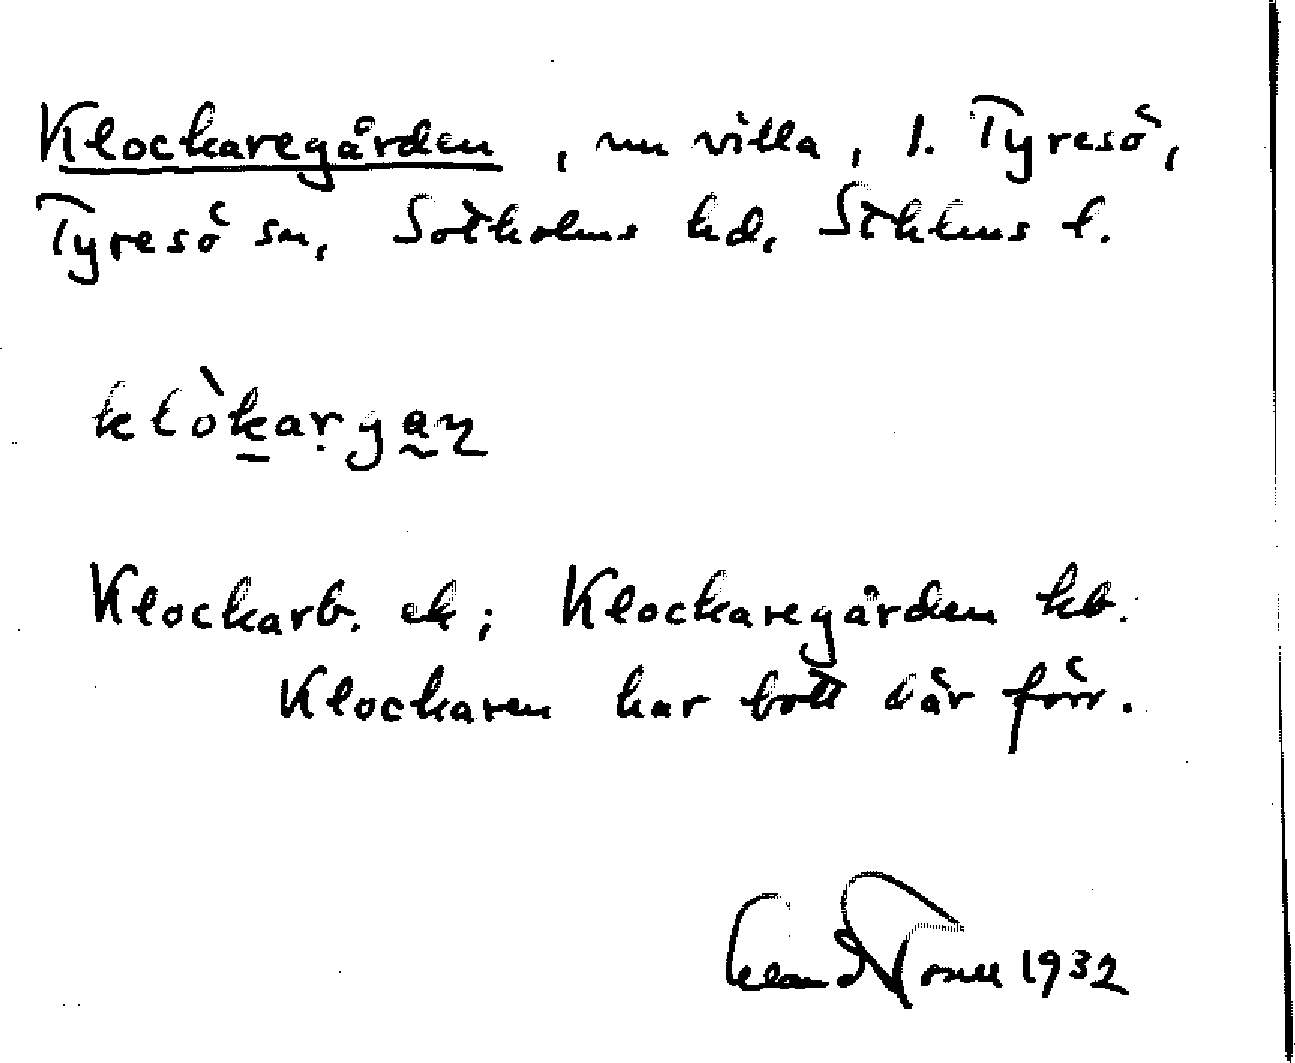 Klockaregården, nu villa, 1. Tyresö,
Tyresö sn, Sotholms hd, Sthlms l.
klòkargan
Klockarb. ek; Klockaregården kb.
Klockaren har bott där förr.
1932